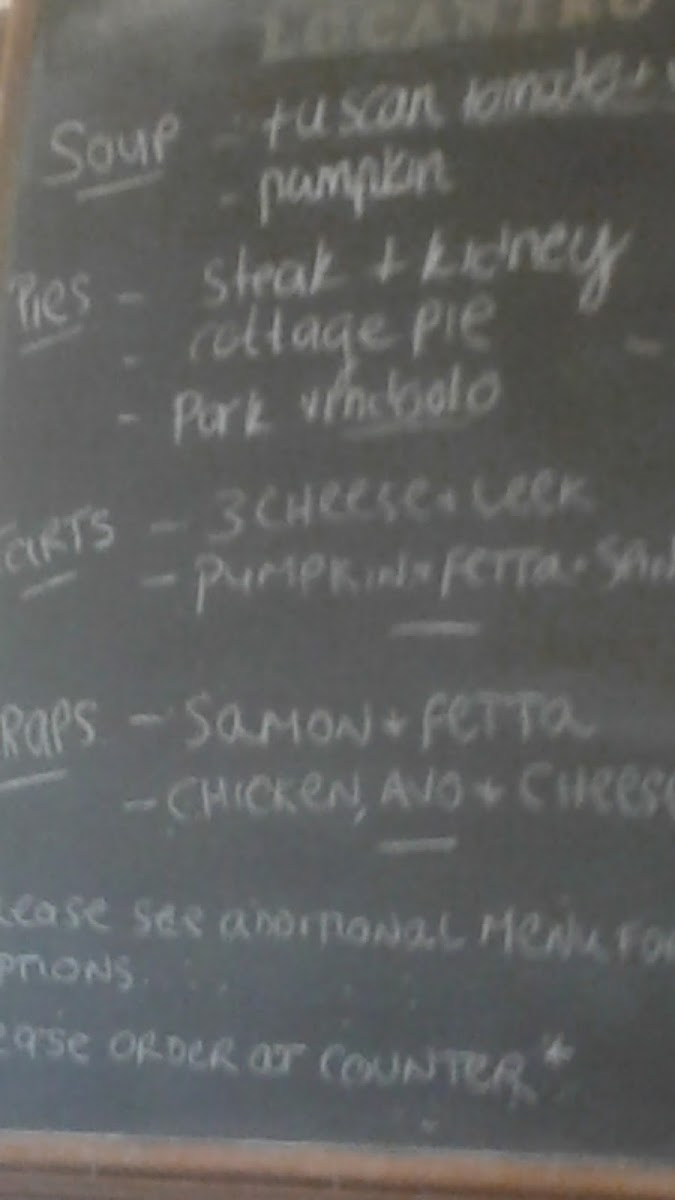 LOCANTRO
Soup - tuscan tomato +
- pumpkin
Pies - steak + kidney
- cottage pie -
- Pork vindaolo
TARTS - 3 CHeese + Leek
- PUMPKIN + FeTTa + SAN
RaPS - SaMON + FeTTa
- CHICKeN, AVO + CHeese
lease see additional Menu FOR
PTIONS.
ease ORDER AT COUNTER *